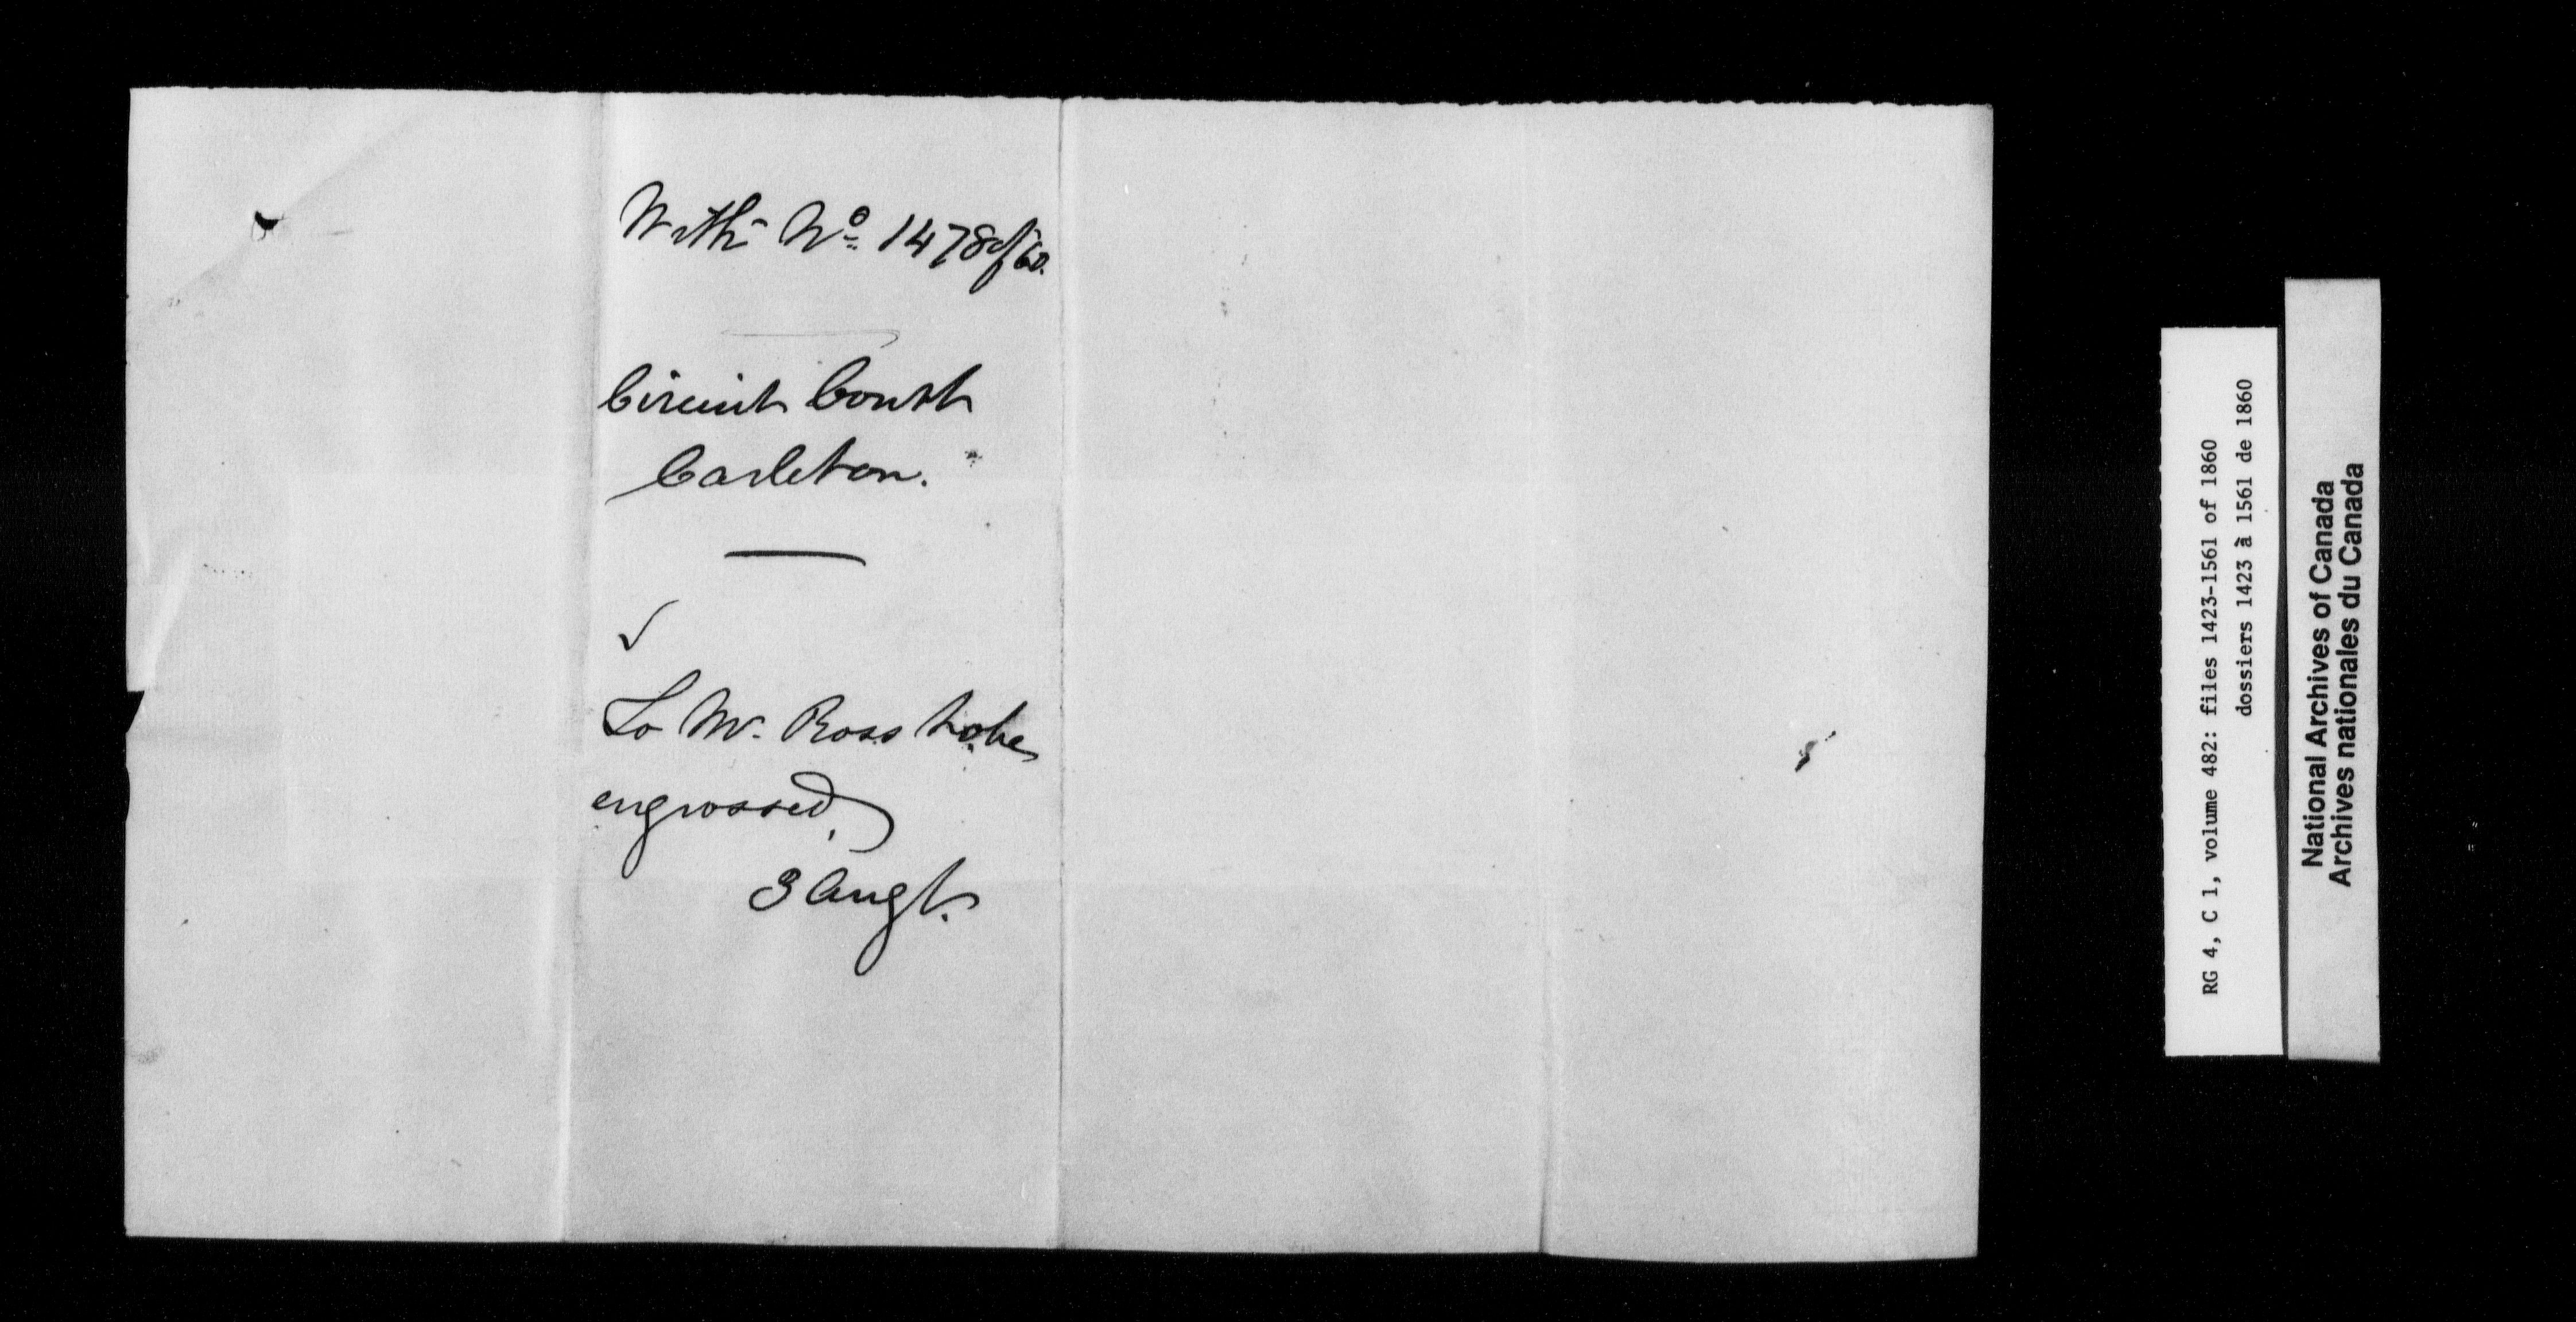 With No 1478 of 60.
Circuit Court
Carleton.
✓
To Mr. Ross to be
engrossed,
3 Augt.
RG 4, C 1, volume 482: files 1423-1561 of 1860
dossiers 1423 à 1561 de 1860
National Archives of Canada
Archives nationales du Canada